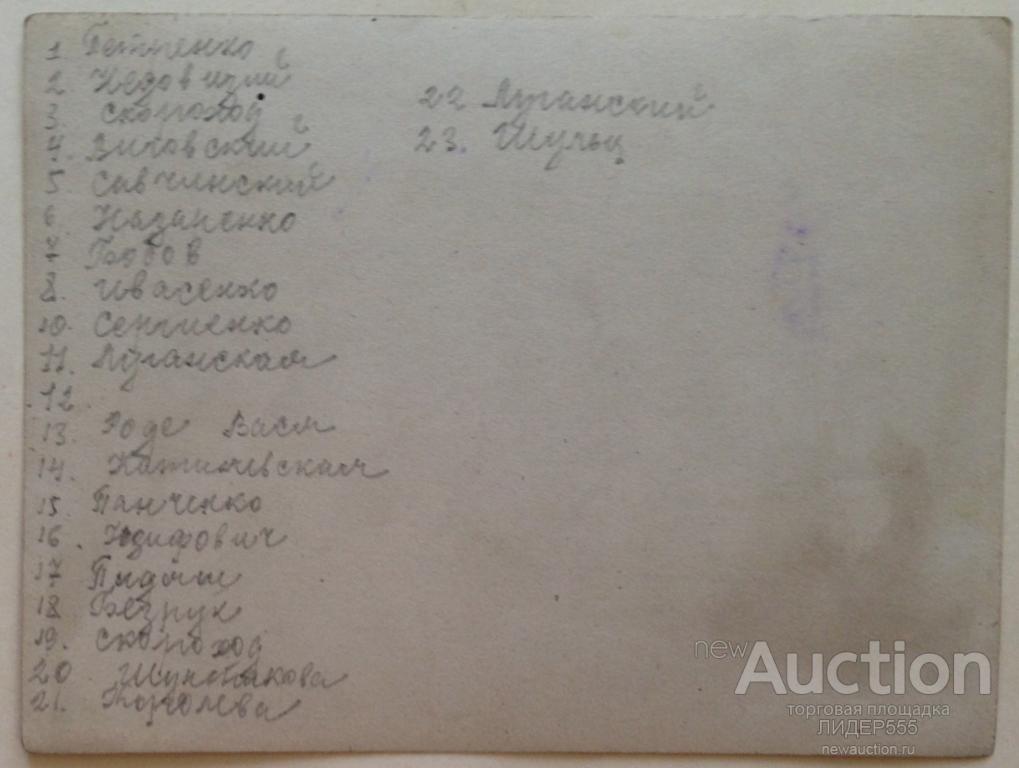 1 Петренко
2. Недовизий
3. Скороход
4. Витовский
5 Савчинский
6. Назаненко
7 Бобов
8. Ивасенко
10. Сергиенко
11. Луганская
12.
13. Роде Васи
14.
15. Панченко
16. Юзифович
17
18 Безрук
19. Скороход
20
21. Королева
22 Луганский
23. Шульц
newAuction
торговая площадка
ЛИДЕР555
newauction.ru